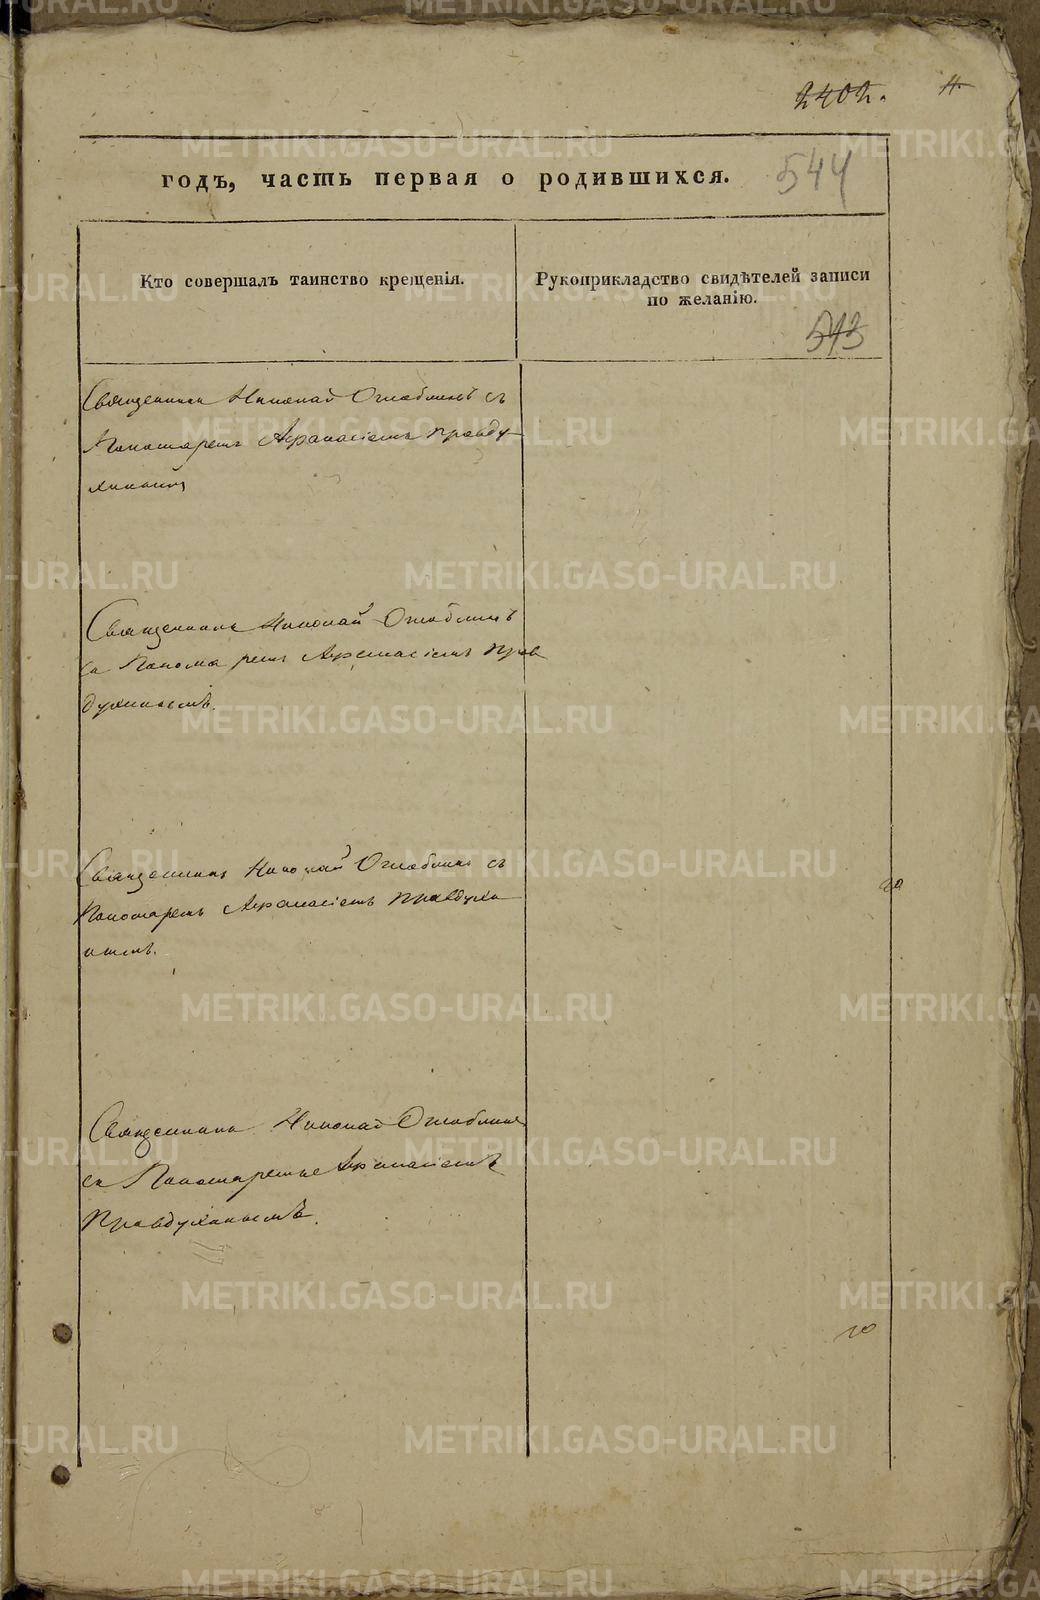 2402.
11.
годъ, часть первая о родившихся.
544
Кто совершалъ таинство крещенія.
Рукоприкладство свидѣтелей записи
по желанію.
543
Священникъ Николай Оглоблинъ съ
Пономаремъ Афанасіемъ Правду-
хинымъ
Священникъ Николай Оглоблинъ
съ Пономаремъ Афанасіемъ Прав
духинымъ.
Священникъ Николай Оглоблинъ съ
Пономаремъ Афанасіемъ Правдухи
нымъ.
Священникъ Николай Оглоблинъ
съ Пономаремъ Афанасіемъ
Правдухинымъ.
METRIKI.GASO-URAL.RU